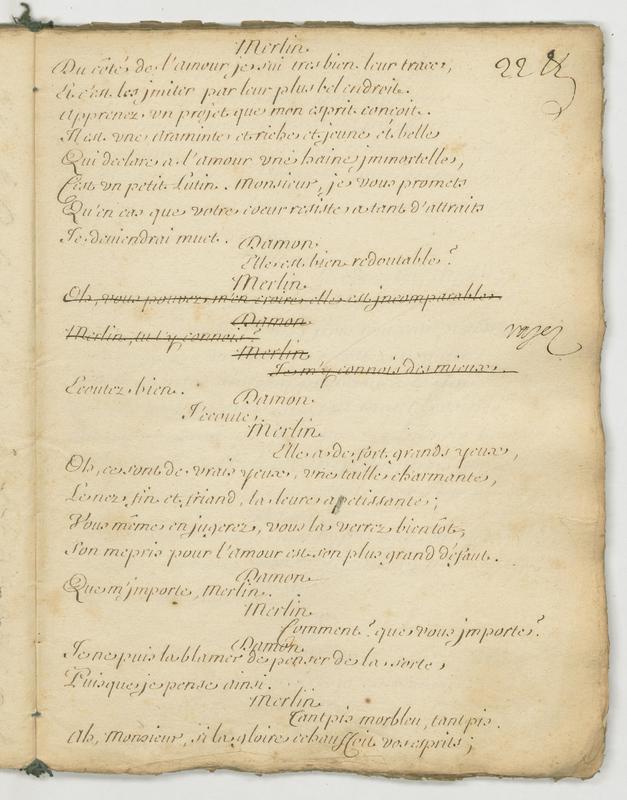 Merlin.
Du côté de l'amour je sui tres bien leur trace,
22
Et c'est les jmiter par leur plus bel endroit.
Apprenez vn projet que mon esprit conçoit.
Il est vne Araminte et riche et jeune et belle
Qui declare a l'amour vne haine jmmortelle,
C'est vn petit Lutin. Monsieur, je vous promets
Qu'en cas que votre coeur resiste a tant d'attraits
Je deuiendrai muet.
Damon.
Elle est bien redoutable?
Merlin.
Oh, vous pouuez m'en croire elle est jncomparable.
Damon
Merlin, tu t'y connois?
rayez
Merlin
Je m'y connois des mieux.
Ecoutez bien.
Damon.
J'ecoute.
Merlin.
Elle a de fort grands yeux,
Oh, ce sont de vrais yeux, vne taille charmante,
Le nez fin et friand, la leure apetissante;
Vous même en jugerez, vous la verrez bientôt,
Son mepris pour l'amour est son plus grand défaut.
Damon.
Que m'jmporte, Merlin.
Merlin.
Comment? que vous jmporte?
Damon.
Je ne puis la blamer de penser de la sorte,
Puisque je pense ainsi.
Merlin.
Tant pis morbleu, tant pis.
Ah, Monsieur, si la gloire echauffoit vos esprits;